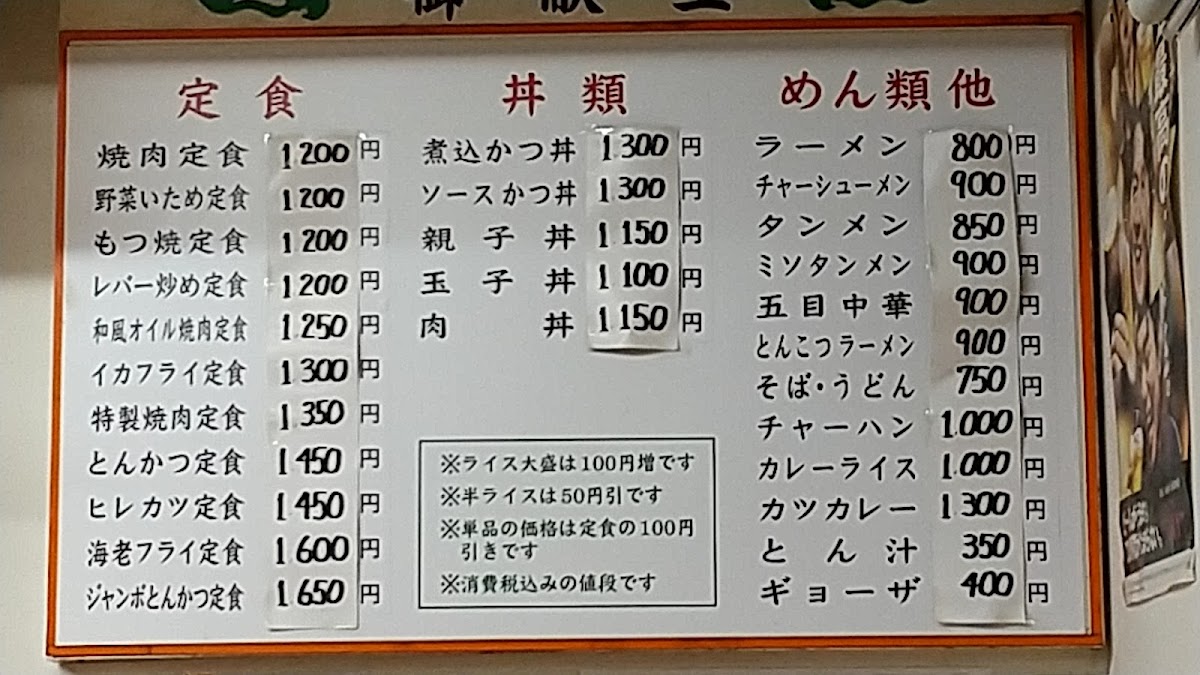 御献立
定食
焼肉定食 1200円
野菜いため定食 1200円
もつ焼定食 1200円
レバー炒め定食 1200円
和風オイル焼肉定食 1.250円
イカフライ定食 1.300円
特製焼肉定食 1.350円
とんかつ定食 1450円
ヒレカツ定食 1450円
海老フライ定食 1.600円
ジャンボとんかつ定食 1.650円
丼類
煮込かつ丼 1300円
ソースかつ丼 1300円
親子丼 1150円
玉子丼 1100円
肉丼 1150円
※ライス大盛は100円増です
※半ライスは50円引です
※単品の価格は定食の100円
引きです
※消費税込みの値段です
めん類他
ラーメン 800円
チャーシューメン 900円
タンメン 850円
ミソタンメン 900円
五目中華 900円
とんこつラーメン 900円
そば・うどん 750円
チャーハン 1.000円
カレーライス 1.000円
カツカレー 1300円
とん汁 350円
ギョーザ 400円